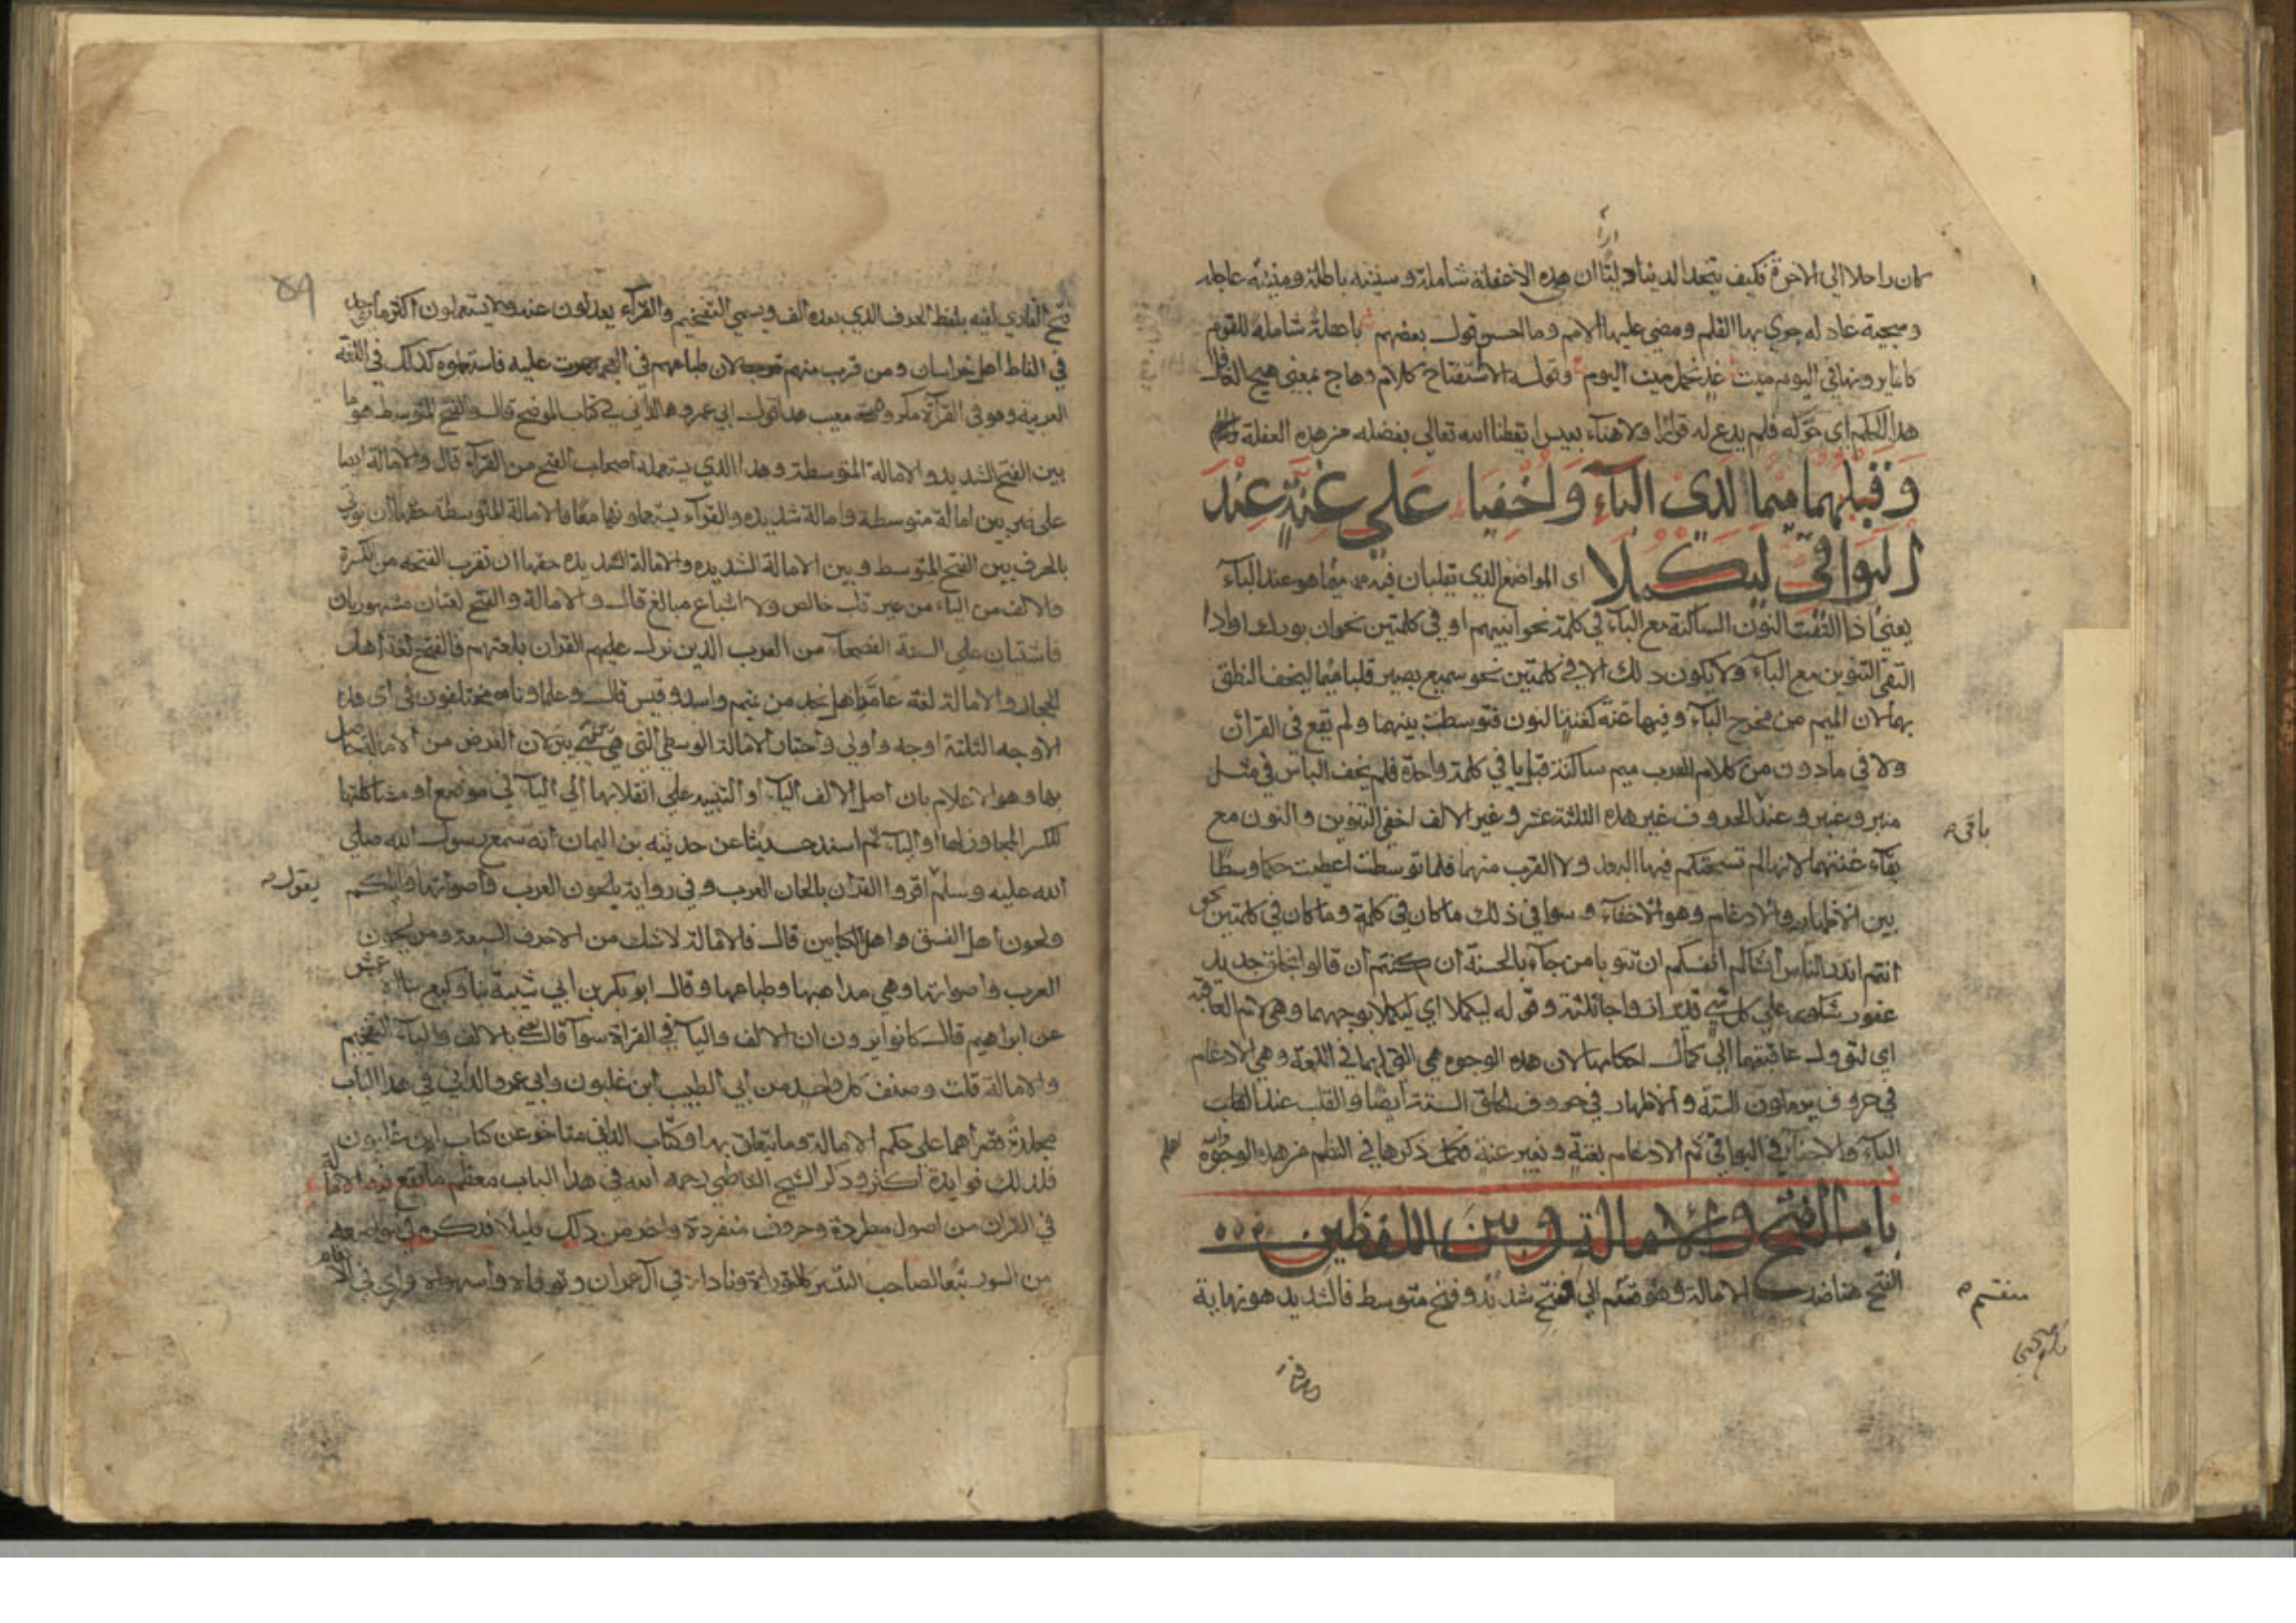 كان راحلا الى الاخرة فكيف يتخذ الدنيا دار لبثا ان هذه الاغفلة شاملة و سنة باطلة ومنية عاجلة
و سجية عادله جرى بها القلم ومضى عليها الامم وما احسن قول بعضهم شاملة للقوم
كانما يرونها في اليوم ميت غد نحمل ميت اليوم وقوله الاستفتاح كلام وهاج بمعنى هيج
هذا الكلم اي حركه فلم يدع له قرارا ولا هناء بعيش ايقظنا الله تعالى بفضله من هذه الغفلة
وَقَلْبُهما ميما لدى الباء وأخفيا على غنة عند
البواقي ليكملا
اى المواضع الذي تقلبان فيه ميما هو عند الباء
يعني اذا التقت النون الساكنة مع الباء في كلمة نحو انبيهم او في كلمتين نحو ان بورك او اذا
التقى التنوين مع الباء ولا يكون ذلك الا في كلمتين نحو سميع بصير قلبا ميما ليخف النطق
بهما لان الميم من مخرج الباء وفيها غنة كغنة النون فتوسطت بينهما ولم تقع في القرآن
ولا في ما دون من كلام العرب ميم ساكنة قبل با في كلمة واحدة فلم يخف الباس في مثل
منبر وعنبر وعند الحروف غير هذه الثلثة عشر وغير الالف اخفي التنوين والنون مع
باقي
بقاء غنتهما لانها لم تستحكم فيها البعد ولا القرب منهما فلما توسطت اعطيت حكما وسطا
بين الاظهار والادغام وهو الاخفاء وسوا في ذلك ما كان في كلمة وما كان في كلمتين نحو
انتم انذر الناس انشاكم انفسكم ان تتوبا من جاء بالحسنة ان كنتم ان قالوا بخلق جديد
غفور شكور على كل شي قدير ازواجا ثلثة وقوله ليكملا اي ليكملا بوجههما وهي لام العاقبة
اي لتؤول عاقبتهما الى كمال احكامها لان هذه الوجوه هي التي لهما في اللغة وهي الادغام
في حروف يرملون الستة والاظهار في حروف الحلق الستة ايضا والقلب عند
الباء والاخفاء في البواقي ثم الادغام بغنة وبغير غنة فكمل ذكرها في النظم من هذه الوجوه
باب الفتح والامالة وبين اللفظين
الفتح هنا ضد الامالة وهو منقسم الى فتح شديد وفتح متوسط فالشديد هو نهاية
منقسم
فتح القاري لفيه بلفظ الحرف الذي بعده الف ويسمى التفخيم والقراء يعدلون عنه ولا يستعملونه واكثر ما يوجد
في الفاظ اهل خراسان ومن قرب منهم لان طباعهم في العجمة جرت عليه فاستعملوه كذلك في اللغة
العربية وهو في القراءة مكروه معيب هذا قول ابي عمرو الداني في كتاب الموضح قال والفتح المتوسط هو ما
بين الفتح الشديد والامالة المتوسطة وهذا الذي يستعمله اصحاب الفتح من القراء قال والامالة ايضا
على ضربين امالة متوسطة وامالة شديدة والقراء يستعملونهما معا فالامالة المتوسطة حقها ان يوتى
بالحرف بين الفتح المتوسط وبين الامالة الشديدة والامالة الشديدة حقها ان تقرب الفتحة من الكسرة
والالف من الياء من غير قلب خالص ولا اشباع مبالغ قال والامالة والفتح لغتان مشهورتان
فاشيتان على السنة الفصحاء من العرب الذين نزل عليهم القران بلغتهم فالفتح لغة اهل
الحجاز والامالة لغة عامة اهل نجد من تميم واسد وقيس قال وعلماونا مختلفون في اى هذه
الاوجه الثلثة اوجه واولى واختار الامالة الوسطى التي هي بين بين لان الغرض من الامالة حاصل
بها وهو الاعلام بان اصل الالف الياء او التنبيه على انقلابها الى الياء في موضع او مشاكلتها
للكسر المجاور لها او الياء ثم اسند حديثا عن حذيفة بن اليمان انه سمع رسول الله صلى
الله عليه وسلم اقروا القران بالحان العرب وفي رواية بلحون العرب واصواتها واياكم
يقول
ولحون اهل الفسق واهل الكتابين قال فالامالة لا شك من الاحرف السبعة ومن لحون
العرب واصواتها وهي مذاهبها وطباعها وقال ابو بكر بن ابي شيبة ثنا وكيع ثنا الاعمش
عن ابراهيم قال كانوا يرون ان الالف والياء في القراة سوآ قال يعني بالالف والياء التفخيم
والامالة قلت وصنف كل واحد من ابي الطيب ابن غلبون وابي عمرو الداني في هذا الباب
مجلدة قصراهما على حكم الامالة وما يتعلق بها وكتاب الداني متاخر عن كتاب ابن غلبون
فلذلك فوايده اكثر وذكر الشيخ الشاطبي رحمه الله في هذا الباب معظم ما تقع فيه الامالة
في القران من اصول مطردة وحروف منفردة واخر من ذلك قليلا فذكره في مواضعه
من السور تبعا لصاحب التيسير كالتوراة وناداه في آل عمران وتوفاه واستهواه وراى في الانعام